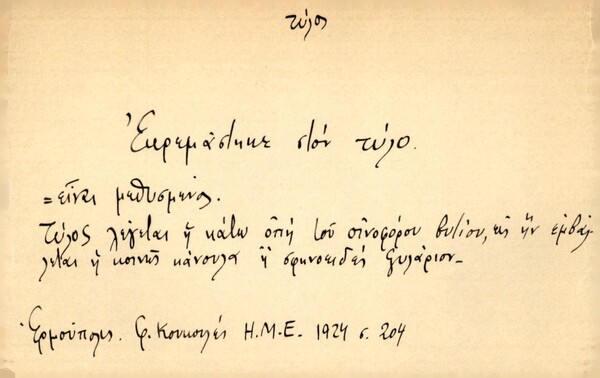 τύλος
Ἐκρεμάστηκε στόν τύλο.
= εἶναι μεθυσμένος.
Τύλος λέγεται ἡ κάτω ὀπή τοῦ οἰνοφόρου βυτίου, εἰς ἥν ἐμβάλ
λεται ἡ κοινῶς κάνουλα ἤ σφηνοειδές ξυλάριον_
Ἑρμούπολις. Φ. Κουκουλές Η.Μ.Ε. 1924 σ. 204